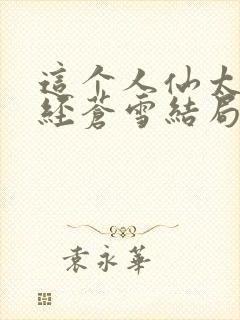 這个人仙太
經蒼雪結局
袁永華